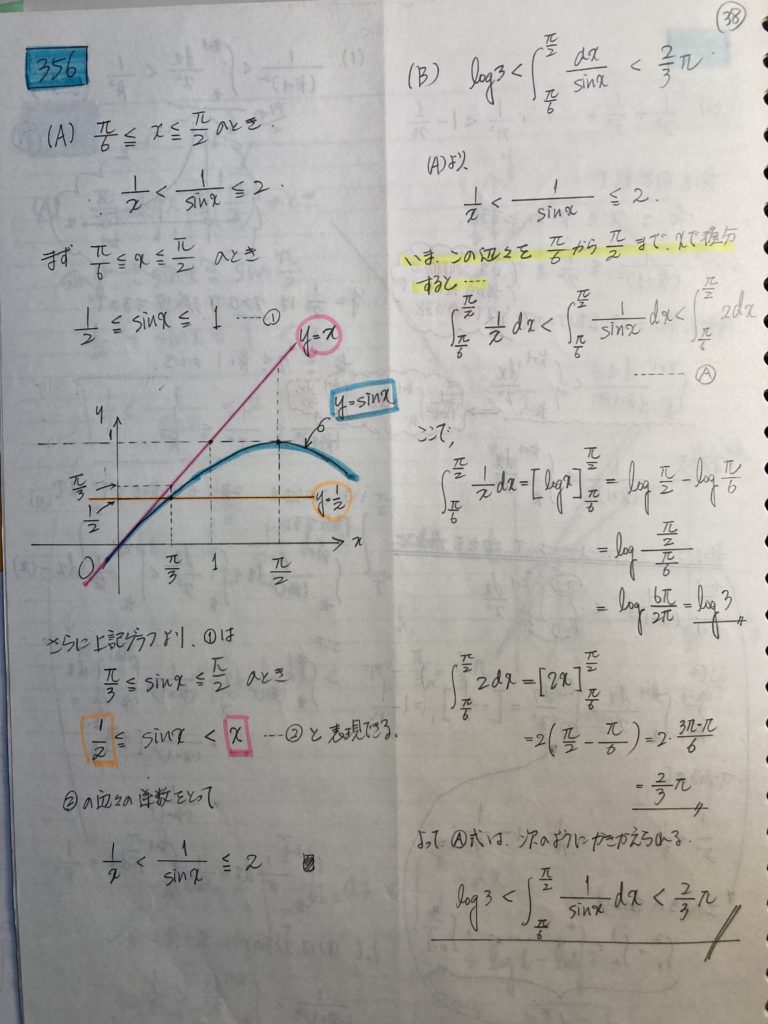 38
356
(A) π/6 ≦ x ≦ π/2 のとき.
1/x < 1/sinx ≦ 2.
まず π/6 ≦ x ≦ π/2 のとき
1/2 ≦ sinx ≦ 1 ……①
y=x
y=sinx
y
1
π/3
1/2
y=1/2
O
π/3
1
π/2
x
さらに上記グラフより、①は
π/3 ≦ sinx ≦ π/2 のとき
1/2 ≦ sinx < x ……② と表現できる.
②の辺々の逆数をとって
1/x < 1/sinx ≦ 2
(B) log3 < ∫[π/6→π/2] dx/sinx < 2/3 π.
(A)より、
1/x < 1/sinx ≦ 2.
いま、この辺々を π/6 から π/2 まで、xで積分
すると……
∫[π/6→π/2] 1/x dx < ∫[π/6→π/2] 1/sinx dx < ∫[π/6→π/2] 2dx
……Ⓐ
ここで,
∫[π/6→π/2] 1/x dx = [logx][π/6→π/2] = log π/2 − log π/6
= log (π/2)/(π/6)
= log 6π/2π = log3
∫[π/6→π/2] 2dx = [2x][π/6→π/2]
= 2(π/2 − π/6) = 2・(3π−π)/6
= 2/3 π
よって、Ⓐ式は、次のようにかきかえられる.
log3 < ∫[π/6→π/2] 1/sinx dx < 2/3 π